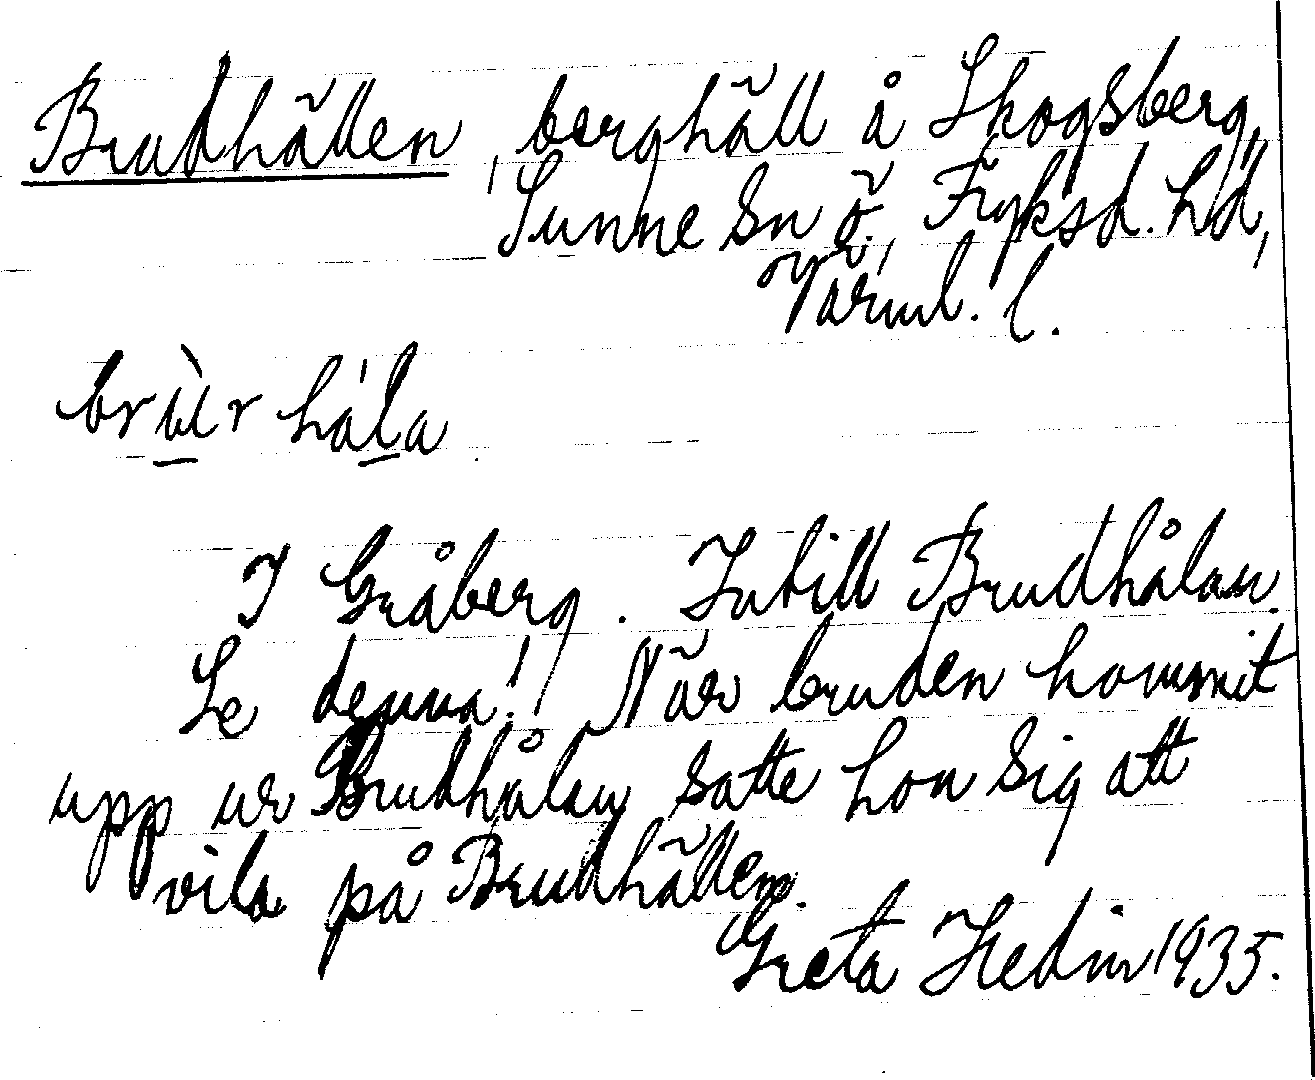 Brudhällen, berghäll å Skogsberg,
Sunne sn ö., Fryksd. hd,
Värml. l.
brùr hála
I Gråberg. Intill Brudhålan.
Se denna! När bruden kommit
upp ur Brudhålan satte hon sig att
vila på Brudhällen.
Greta Hedin 1935.